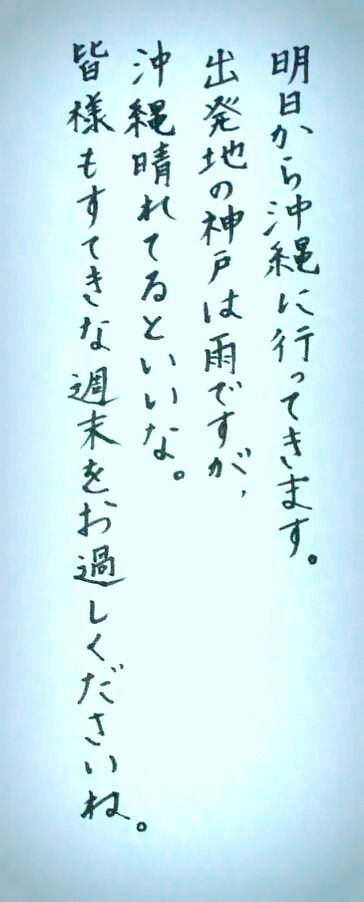 明日から沖縄に行ってきます。
出発地の神戸は雨ですが、
沖縄晴れてるといいな。
皆様もすてきな週末をお過しくださいね。